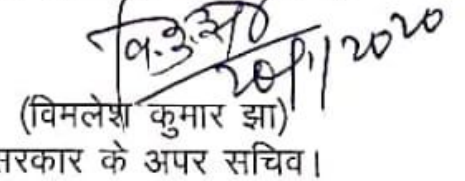 वि.कु.झा
20/1/2020
(विमलेश कुमार झा)
सरकार के अपर सचिव।